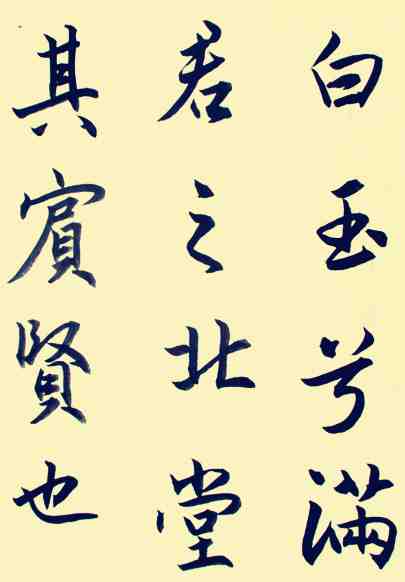 白玉兮滿
君之北堂
其賓賢也